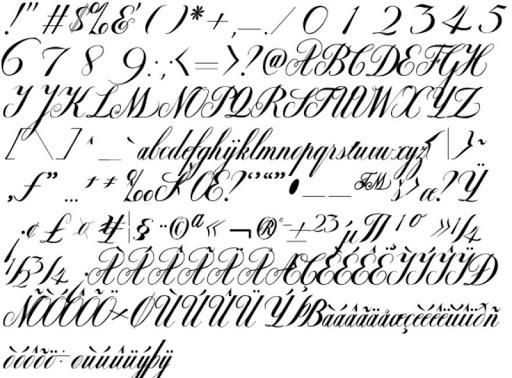 !"#$%&'()*+,-./012345
6789:;<=>?@ABCDEFGH
IJKLMNOPQRSTUVWXYZ
[\]^_`abcdefghijklmnopqrstuvwxyz{|}~
‚ƒ„…†‡‰ŠŒ?‘“”•–—™š›œ?Ÿ
¡¢£¤¥¦§¨©ª«¬®¯°±²³´µ¶·¸¹º»¼
½¾¿ÀÁÂÃÄÅÆÇÈÉÊËÌÍÎÏÐ
ÑÒÓÔÕÖ×ØÙÚÛÜÝÞßàáâãäåæçèéêëìíîïðñ
òóôõö÷øùúûüýþÿ